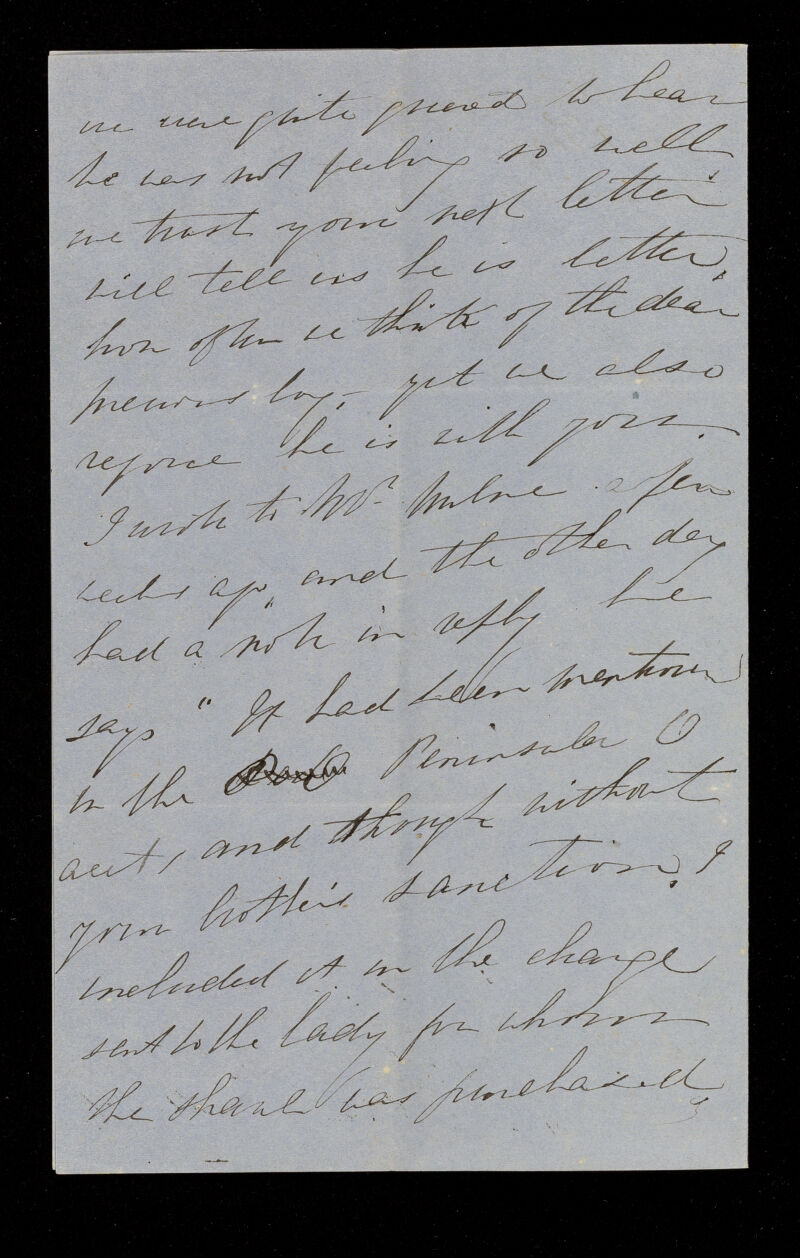 we were quite grieved to hear
he was not feeling so well,
we trust your next letter
will tell us he is better,
how often we think of the dear
precious boy, yet we also
rejoice he is with you.
I wrote to Mr. Milne a few
weeks ago, and the other day
had a note in reply he
says " It had been mention
in the Peninsular O
acct, and though without
your brother's sanction, I
included it in the charge
sent to the lady for whom
the shawl was purchased,